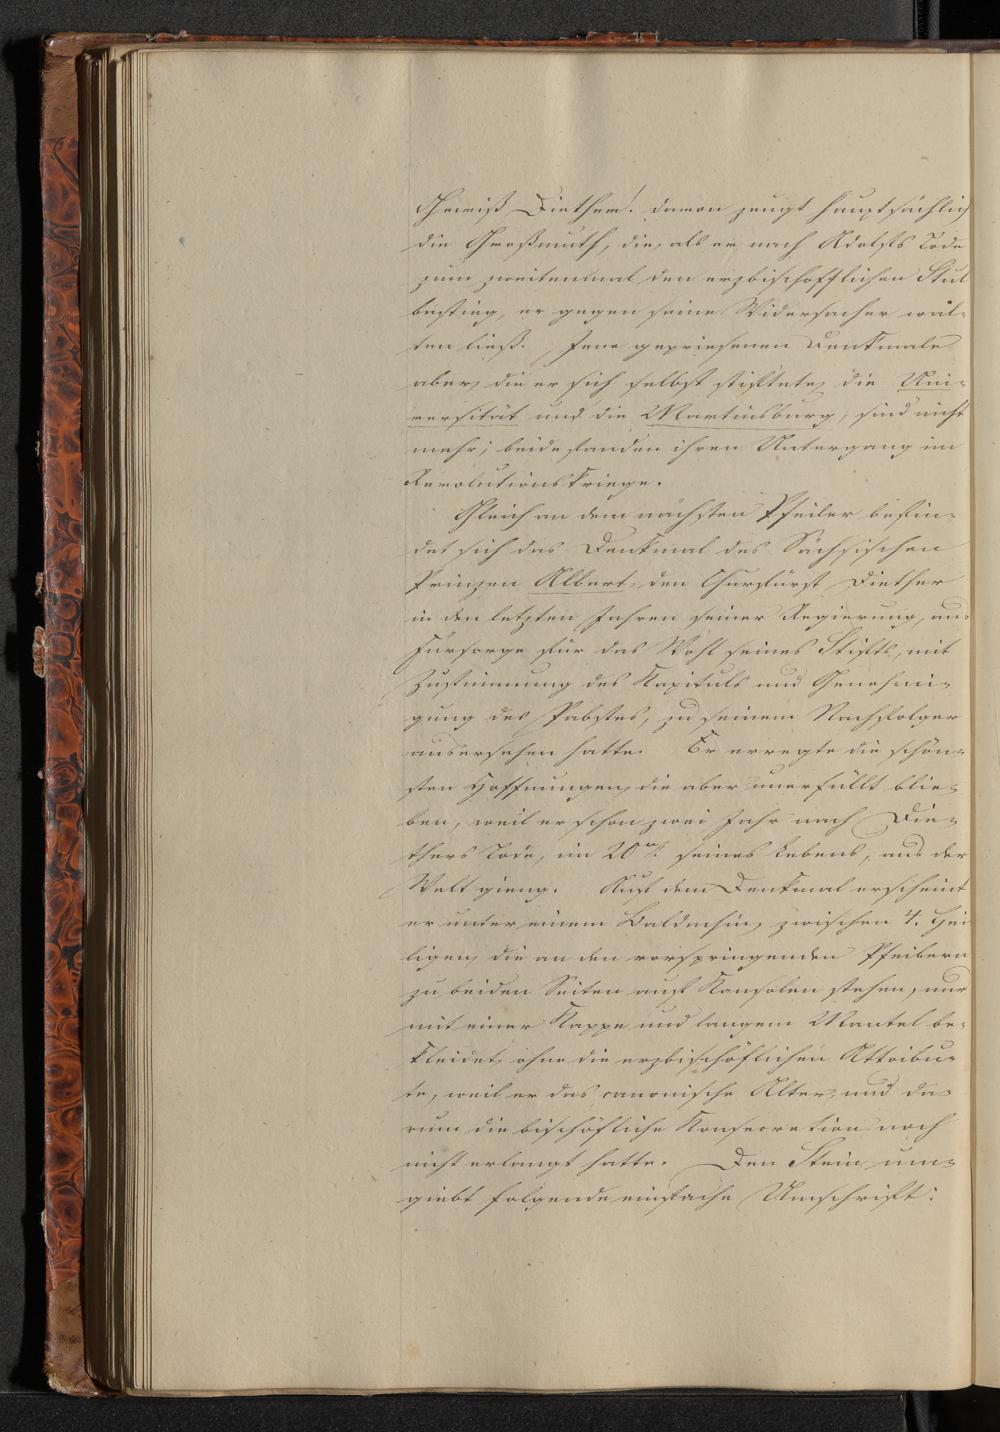 Gewiß Diether! davon zeugt hauptsächlich
die Großmuth, die, als er nach Adolfs Tode
zum zweitenmal den erzbischöfflichen Stul
bestieg, er gegen seine Widersacher wal-
ten ließ. Jene gepriesenen Denkmale
aber, die er sich selbst stiftete, die Uni-
versität und die Martinsburg, sind nicht
mehr; beide fanden ihren Untergang im
Revolutionskriege.
Gleich an dem nächsten Pfeiler befin-
det sich das Denkmal des Sächsischen
Prinzen Albert, den Churfürst Diether
in den letzten Jahren seiner Regierung, aus
Fürsorge für das Wohl seines Stifts, mit
Zustimmung des Kapituls und Genehmi-
gung des Pabstes, zu seinem Nachfolger
ausersehen hatte. Er erregte die schön-
sten Hoffnungen, die aber unerfüllt blie-
ben, weil er schon zwei Jahr nach Die-
thers Tode, im 20n seines Lebens, aus der
Welt gieng. Auf dem Denkmal erscheint
er unter einem Baldachin, zwischen 4. Hei
ligen, die an den vorspringenden Pfeilern
zu beiden Seiten auf Konsolen stehen, nur
mit einer Kappe und langem Mantel be-
kleidet, ohne die erzbischöflichen Attribu-
te, weil er das canonische Alter, und da-
rum die bischöfliche Konsecration noch
nicht erlangt hatte. Den Stein um-
giebt folgende einfache Umschrift: